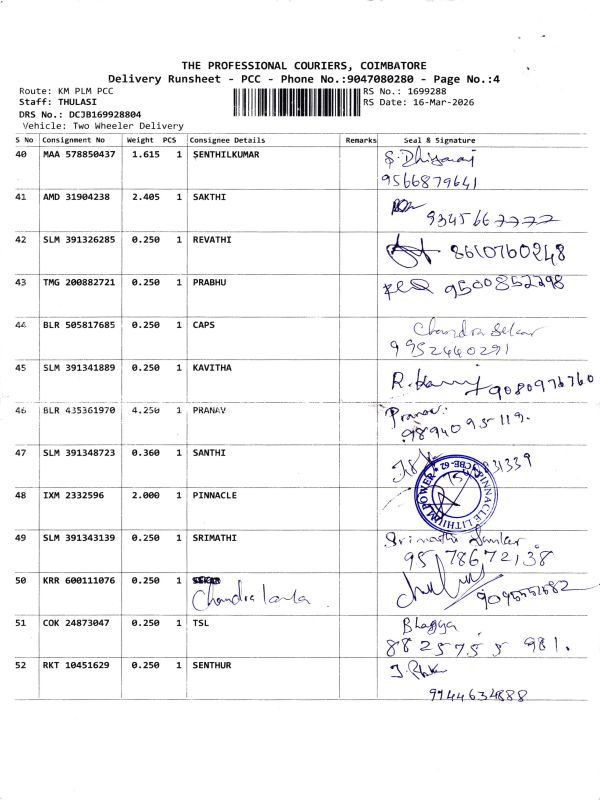 THE PROFESSIONAL COURIERS, COIMBATORE
Delivery Runsheet - PCC - Phone No.:9047080280 - Page No.:4
Route: KM PLM PCC
RS No.: 1699288
Staff: THULASI
RS Date: 16-Mar-2026
DRS No.: DCJB169928804
Vehicle: Two Wheeler Delivery
S No Consignment No Weight PCS Consignee Details Remarks Seal & Signature
40 MAA 578850437 1.615 1 SENTHILKUMAR
9566879641
41 AMD 31904238 2.405 1 SAKTHI
9345667777
42 SLM 391326285 0.250 1 REVATHI 8610760248
43 TMG 200882721 0.250 1 PRABHU 9500852298
44 BLR 505817685 0.250 1 CAPS Chandra Sekar
9952440291
45 SLM 391341889 0.250 1 KAVITHA 9080976760
46 BLR 435361970 4.250 1 PRANAV Pranav.
9894095119.
47 SLM 391348723 0.360 1 SANTHI 31339
48 IXM 2332596 2.000 1 PINNACLE PINNACLE LITHIUM POWER CBE-62
49 SLM 391343139 0.250 1 SRIMATHI Srimathi
9578672138
50 KRR 600111076 0.250 1
Chandra 9095551682
51 COK 24873047 0.250 1 TSL Bhagya
8825755981.
52 RKT 10451629 0.250 1 SENTHUR
9944634888